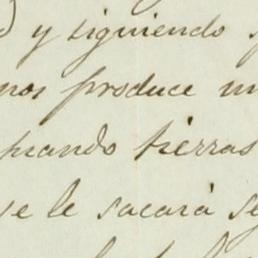 ) y siguiendo
nos produce un
preando tierras
se le sacará se